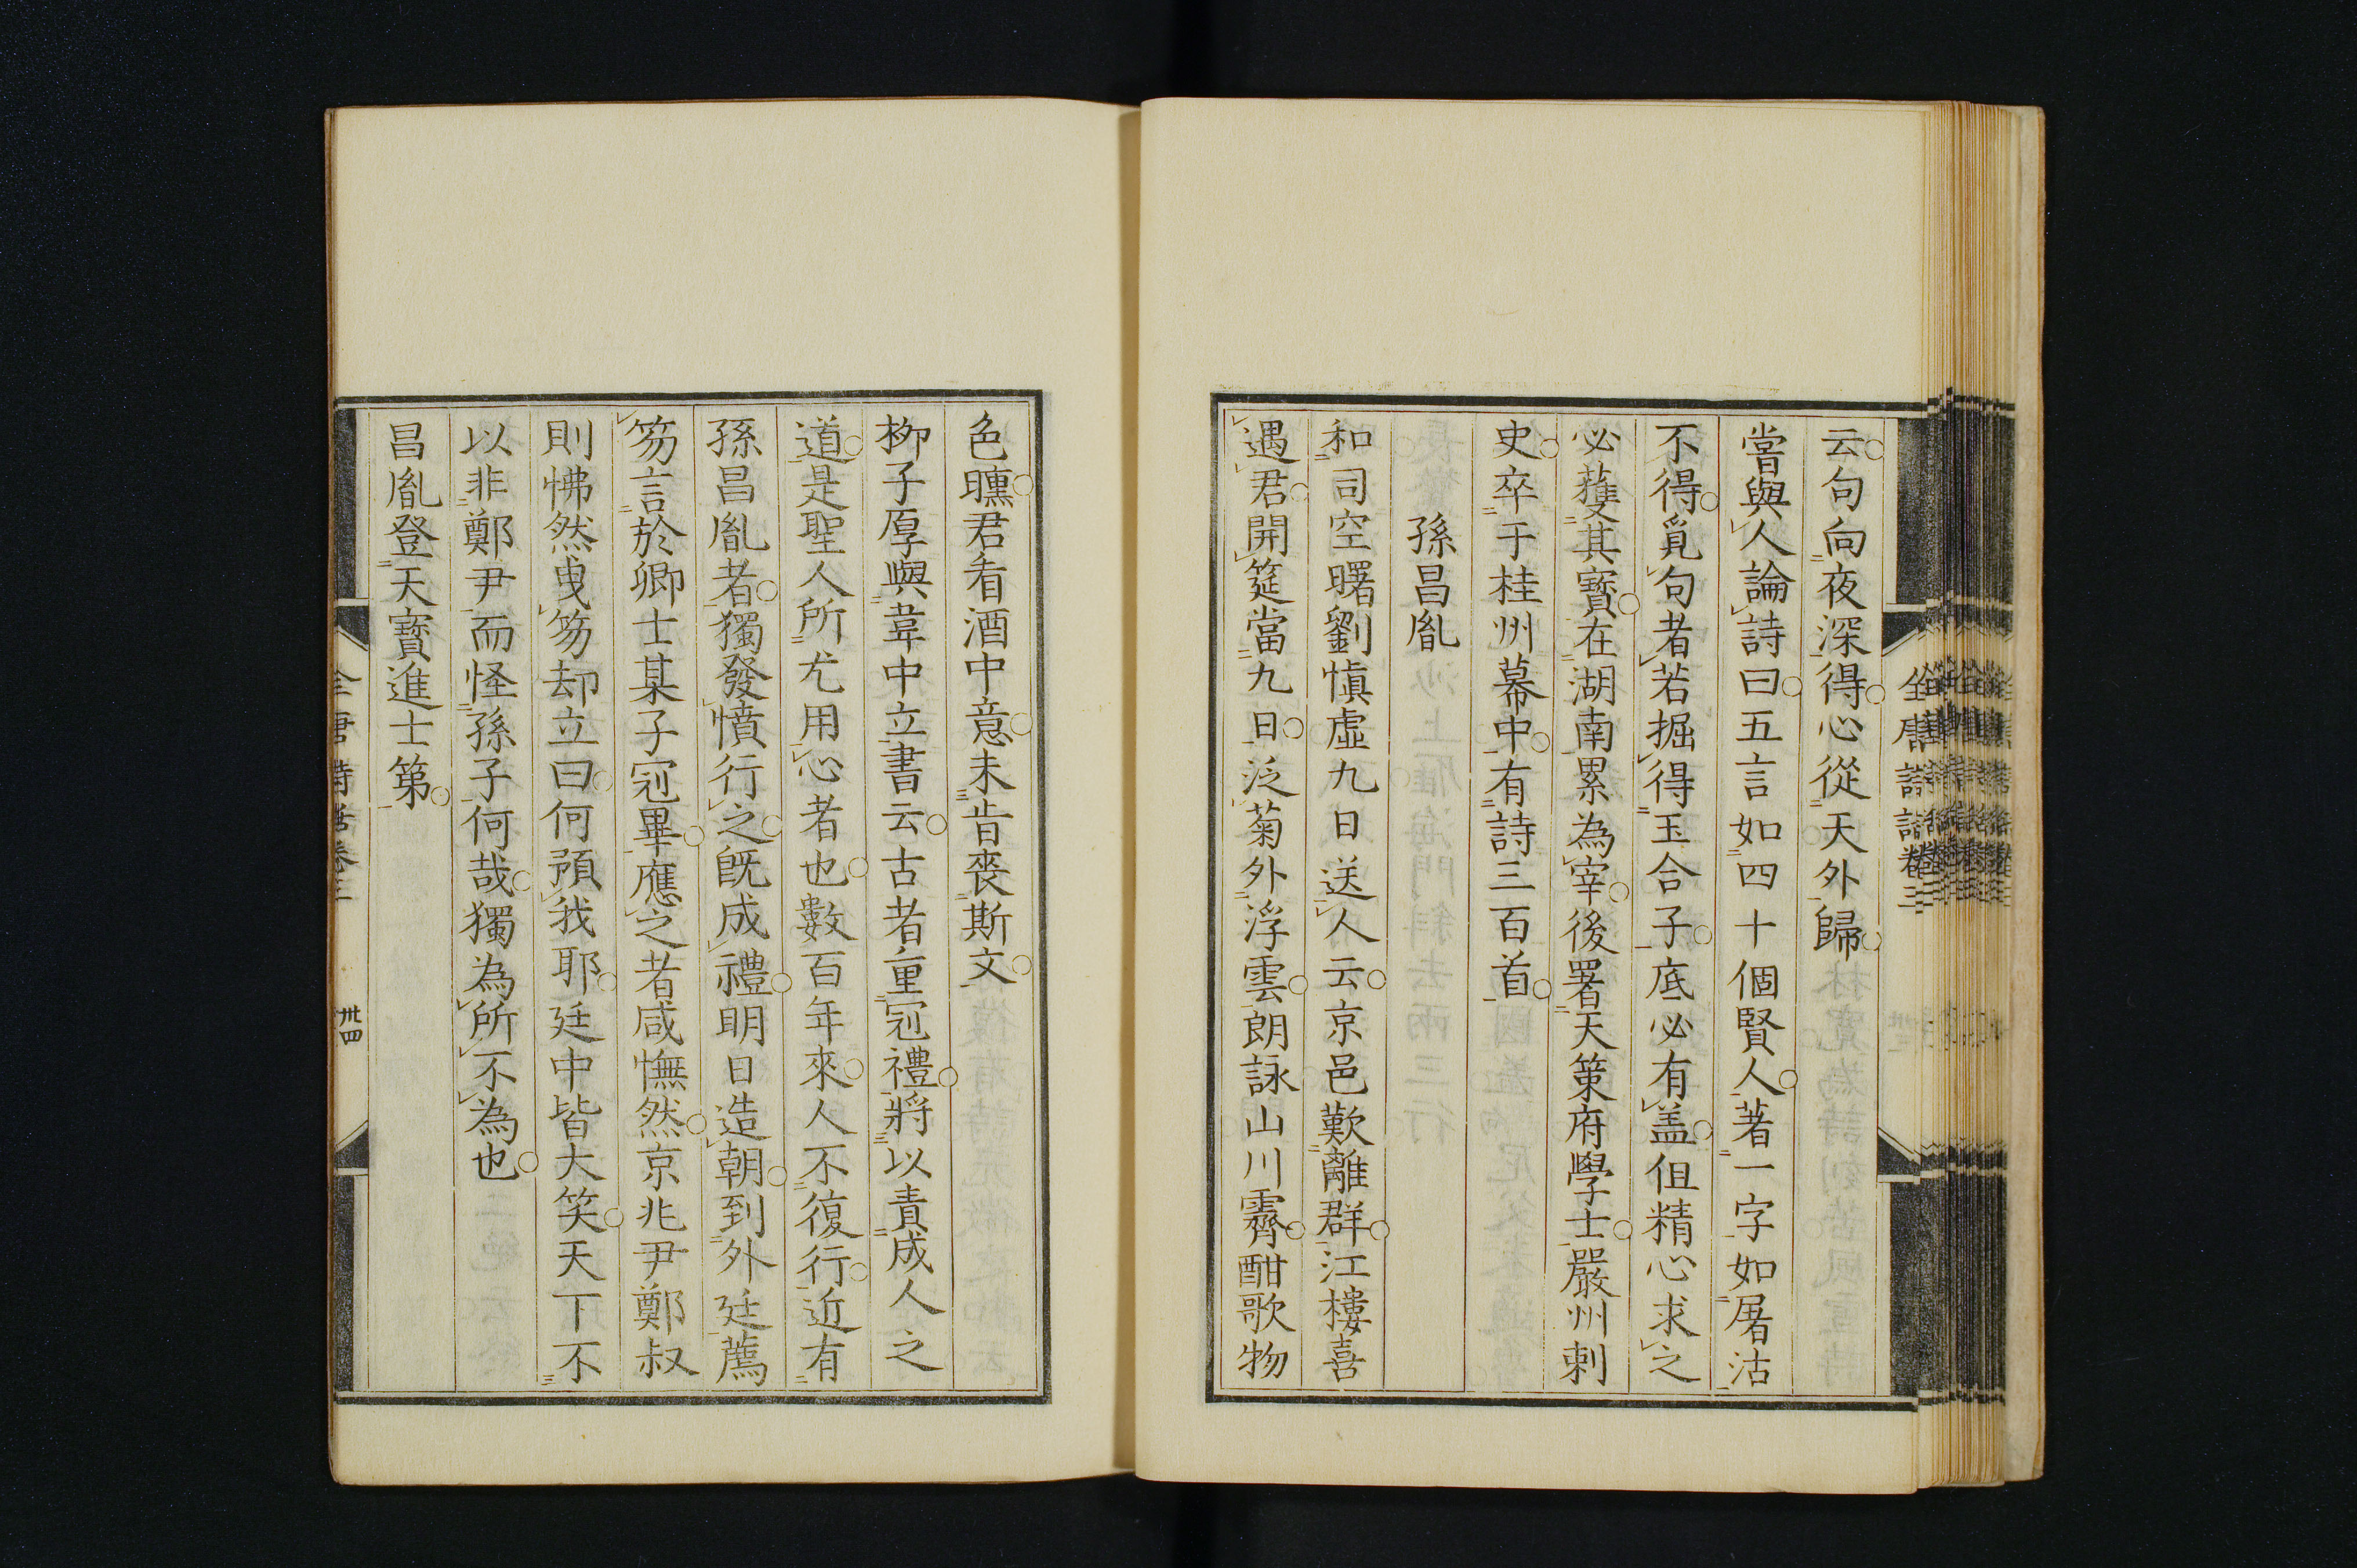 云句向夜深得心從天外歸
嘗與人論詩曰五言如四十個賢人著一字如屠沽
不得覓句者若掘得玉合子底必有盖但精心求之
必獲其寶在湖南累為宰後署天策府學士嚴州刺
史卒于桂州幕中有詩三百首
孫昌胤
和司空曙劉慎虛九日送人云京邑歎離群江樓喜
遇君開筵當九日泛菊外浮雲朗詠山川霽酣歌物
色曛君看酒中意未肯喪斯文
柳子厚與韋中立書云古者重冠禮將以責成人之
道是聖人所尤用心者也數百年來人不復行近有
孫昌胤者獨發憤行之既成禮明日造朝到外廷薦
笏言於卿士某子冠畢應之者咸憮然京兆尹鄭叔
則怫然曳笏却立曰何預我耶廷中皆大笑天下不
以非鄭尹而怪孫子何哉獨為所不為也
昌胤登天寶進士第
全唐詩話卷三
卅四